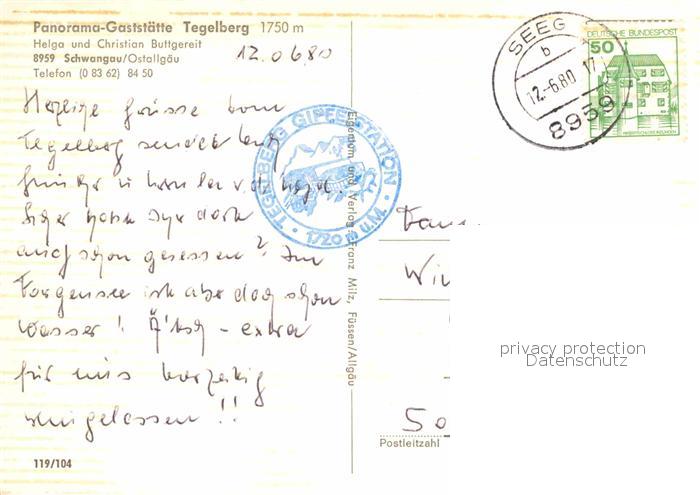 Panorama-Gaststätte Tegelberg 1750 m
Helga und Christian Buttgereit
8959 Schwangau/Ostallgäu
Telefon (0 83 62) 84 50
12.06.80
Herzige Grüsse vom
Tegelberg senden
Sicher
auch schon gesessen? Im
Forgensee ist aber doch schon
Wasser! Ätsch - extra
für uns
eingelassen!!
119/104
TEGELBERG GIPFELSTATION
1720 m ü.M.
Eigentum und Verlag Franz Milz, Füssen/Allgäu
SEEG
b
12.-6.80 17
8959
DEUTSCHE BUNDESPOST
50
Fam
Wi
50
Postleitzahl
privacy protection
Datenschutz